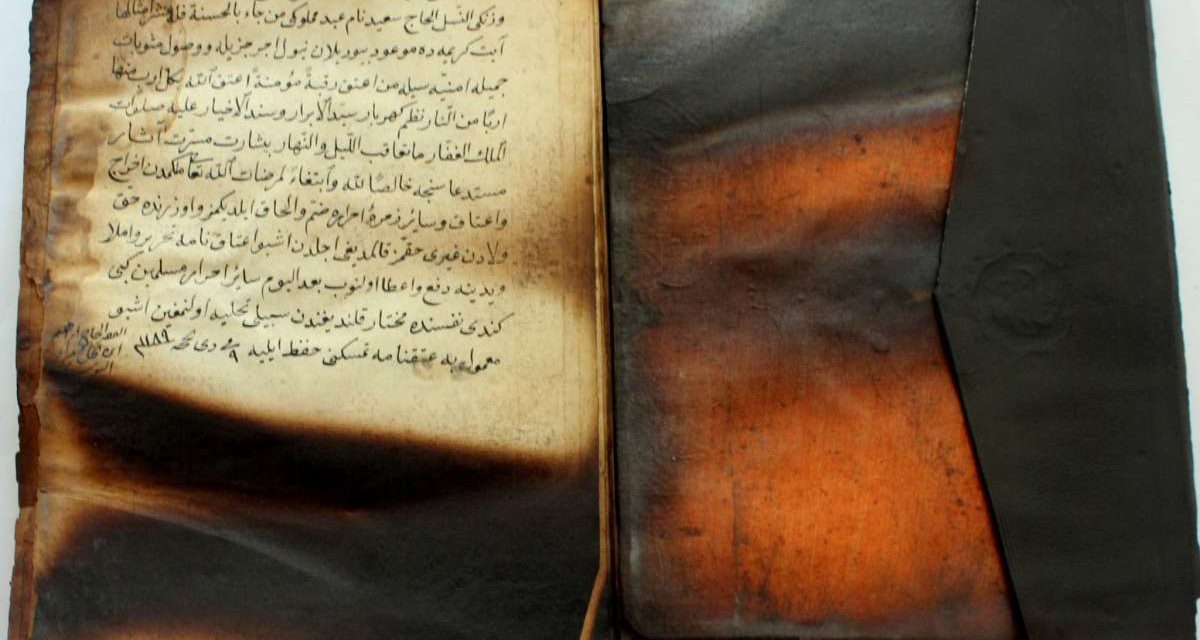 وزنكى النسل الحاج سعيد نام عبد مملوكى من جاء بالحسنة فله عشر امثالها
آيت كريمه ده موعود بيوريلان نيول اجر جزيله ووصول مثوبات
جميله امنيه سيله من اعتق رقبة مؤمنة اعتق الله بكل ارب منها
اربا من النار نظم كهربار سيد الابرار وسند الاخيار عليه صلوات
الملك الغفار ما تعاقب الليل والنهار بشارت مسرت آثار
مستدعاسنجه خالصا لله وابتغاء لمرضات الله تعا ملكمدن اخراج
واعتاق وسائر زمرهٔ احراره ضم والحاق ايلديكمز واوزرنده حق
ولادن غيرى حقمز قالمديغى اجلدن اشبو اعتاق نامه تحرير واملا
ويدينه دفع واعطا اولنوب بعد اليوم سائر احرار مسلمين كبى
كندى نفسنده مختار قلنديغندن سبيلى تخليه اولنمغين اشبو
معمول به عتقنامه تمسكنى حفظ ايليه فى ٩ دى ١١٨٩